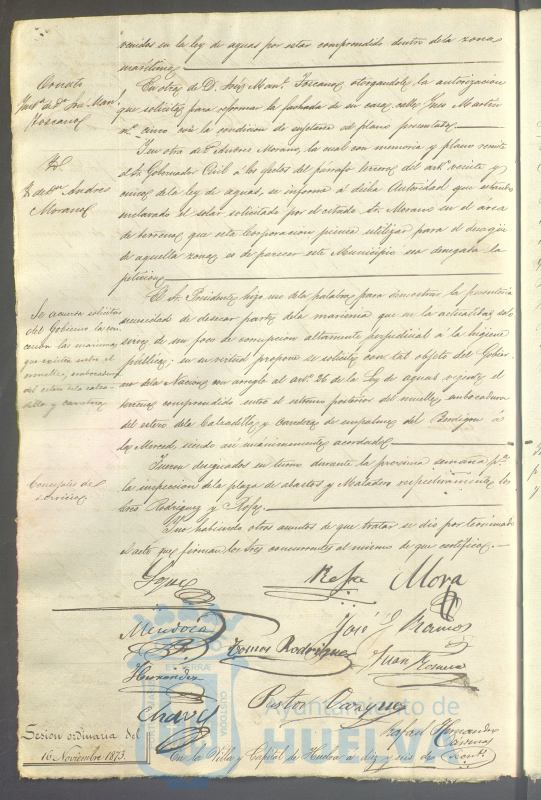 venidos en la ley de aguas por estar comprendido dentro de la zona
marítima.
Conato
En otra de D. José Man.l Toscano, otorgandole la autorizacion
Toscano
que solicita para reformar la fachada de su casa, calle
n.º cinco con la condicion de sugetarse al plano presentado.
Id
Id. de D.n Andrés
Morano
I en otra de D. Andrés Morano, la cual con memoria y plano remite
el Sr. Gobernador Civil á los efectos del párrafo tercero del art.º veinte y
cinco de la ley de aguas, se informa á dicha Autoridad que estando
enclavado el solar solicitado por el citado Sr. Morano en el area
de terreno que esta Corporacion piensa utilizar para el desagüe
de aquella zona, es de parecer este Municipio sea denegada la
peticion.
Se acuerda solicitar
del Gobierno la con-
cesion las marismas
que existen entre el
muelle, embocadura
del estero de la calza-
dilla y carretera
El Sr. Presidente hizo uso de la palabra para demostrar la perentoria
necesidad de desecar parte de la marisma que en la actualidad solo
sirve de un foco de corrupcion altamente perjudicial á la higiene
pública; en su virtud propone se solicite con tal objeto del Gobier-
no de la Nacion con arreglo al art.º 26 de la Ley de aguas vigente el
terreno comprendido entre el estremo posterior del muelle, embocadura
del estero de la Calzadilla y carretera de empalme del Berdigon á
la Merced, siendo así unánimemente acordado.
Concejales de
servicio
Fueron designados en turno durante la procsima semana p.ª
la inspeccion de la plaza de abastos y Matadero respectivamente los
Sres Rodriguez y Rofa.
Y no habiendo otros asuntos de que tratar se dió por terminado
el acto que firman los Sres concurrentes al mismo de que certifico.
Mora
José Ramos
Mendoza
Tomas Rodriguez
Juan
Hernandez
Pastor
Chaves
Rafael Hernandez
Ayuntamiento de
HUELVA
Sesion ordinaria del
16 Noviembre 1873.
En la Villa y Capital de Huelva á diez y seis de